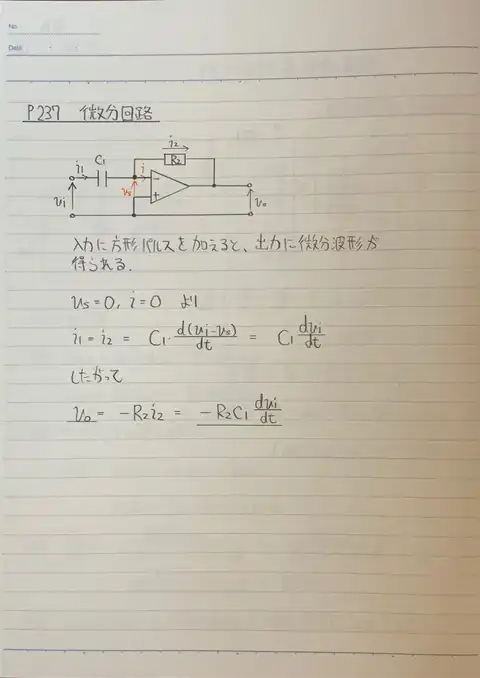 No.
Date
P.237 微分回路
i₂
C₁
i₁
R₂
i
vs
−
+
vi
vo
入力に方形パルスを加えると、出力に微分波形が
得られる.
vs=0, i=0 より
i₁ = i₂ = C₁・d(vi-vs)/dt = C₁ dvi/dt
したがって
vo = -R₂i₂ = -R₂C₁ dvi/dt